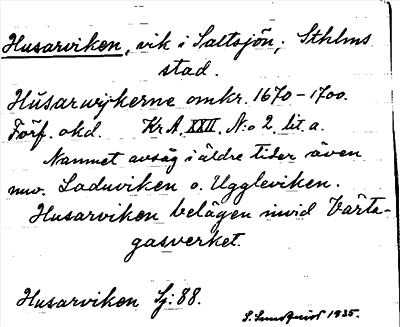 Husarviken, vik i Saltsjön, Sthlms
stad.
Husarwijkerne omkr. 1670-1700.
Förf. okd. Kr A. XXII. N:o 2 lit. a.
Namnet avsåg i äldre tider även
nuv. Laduviken o. Uggleviken.
Husarviken belägen invid Värta-
gasverket.
Husarviken Sj: 88.
S. Sundquist 1935.